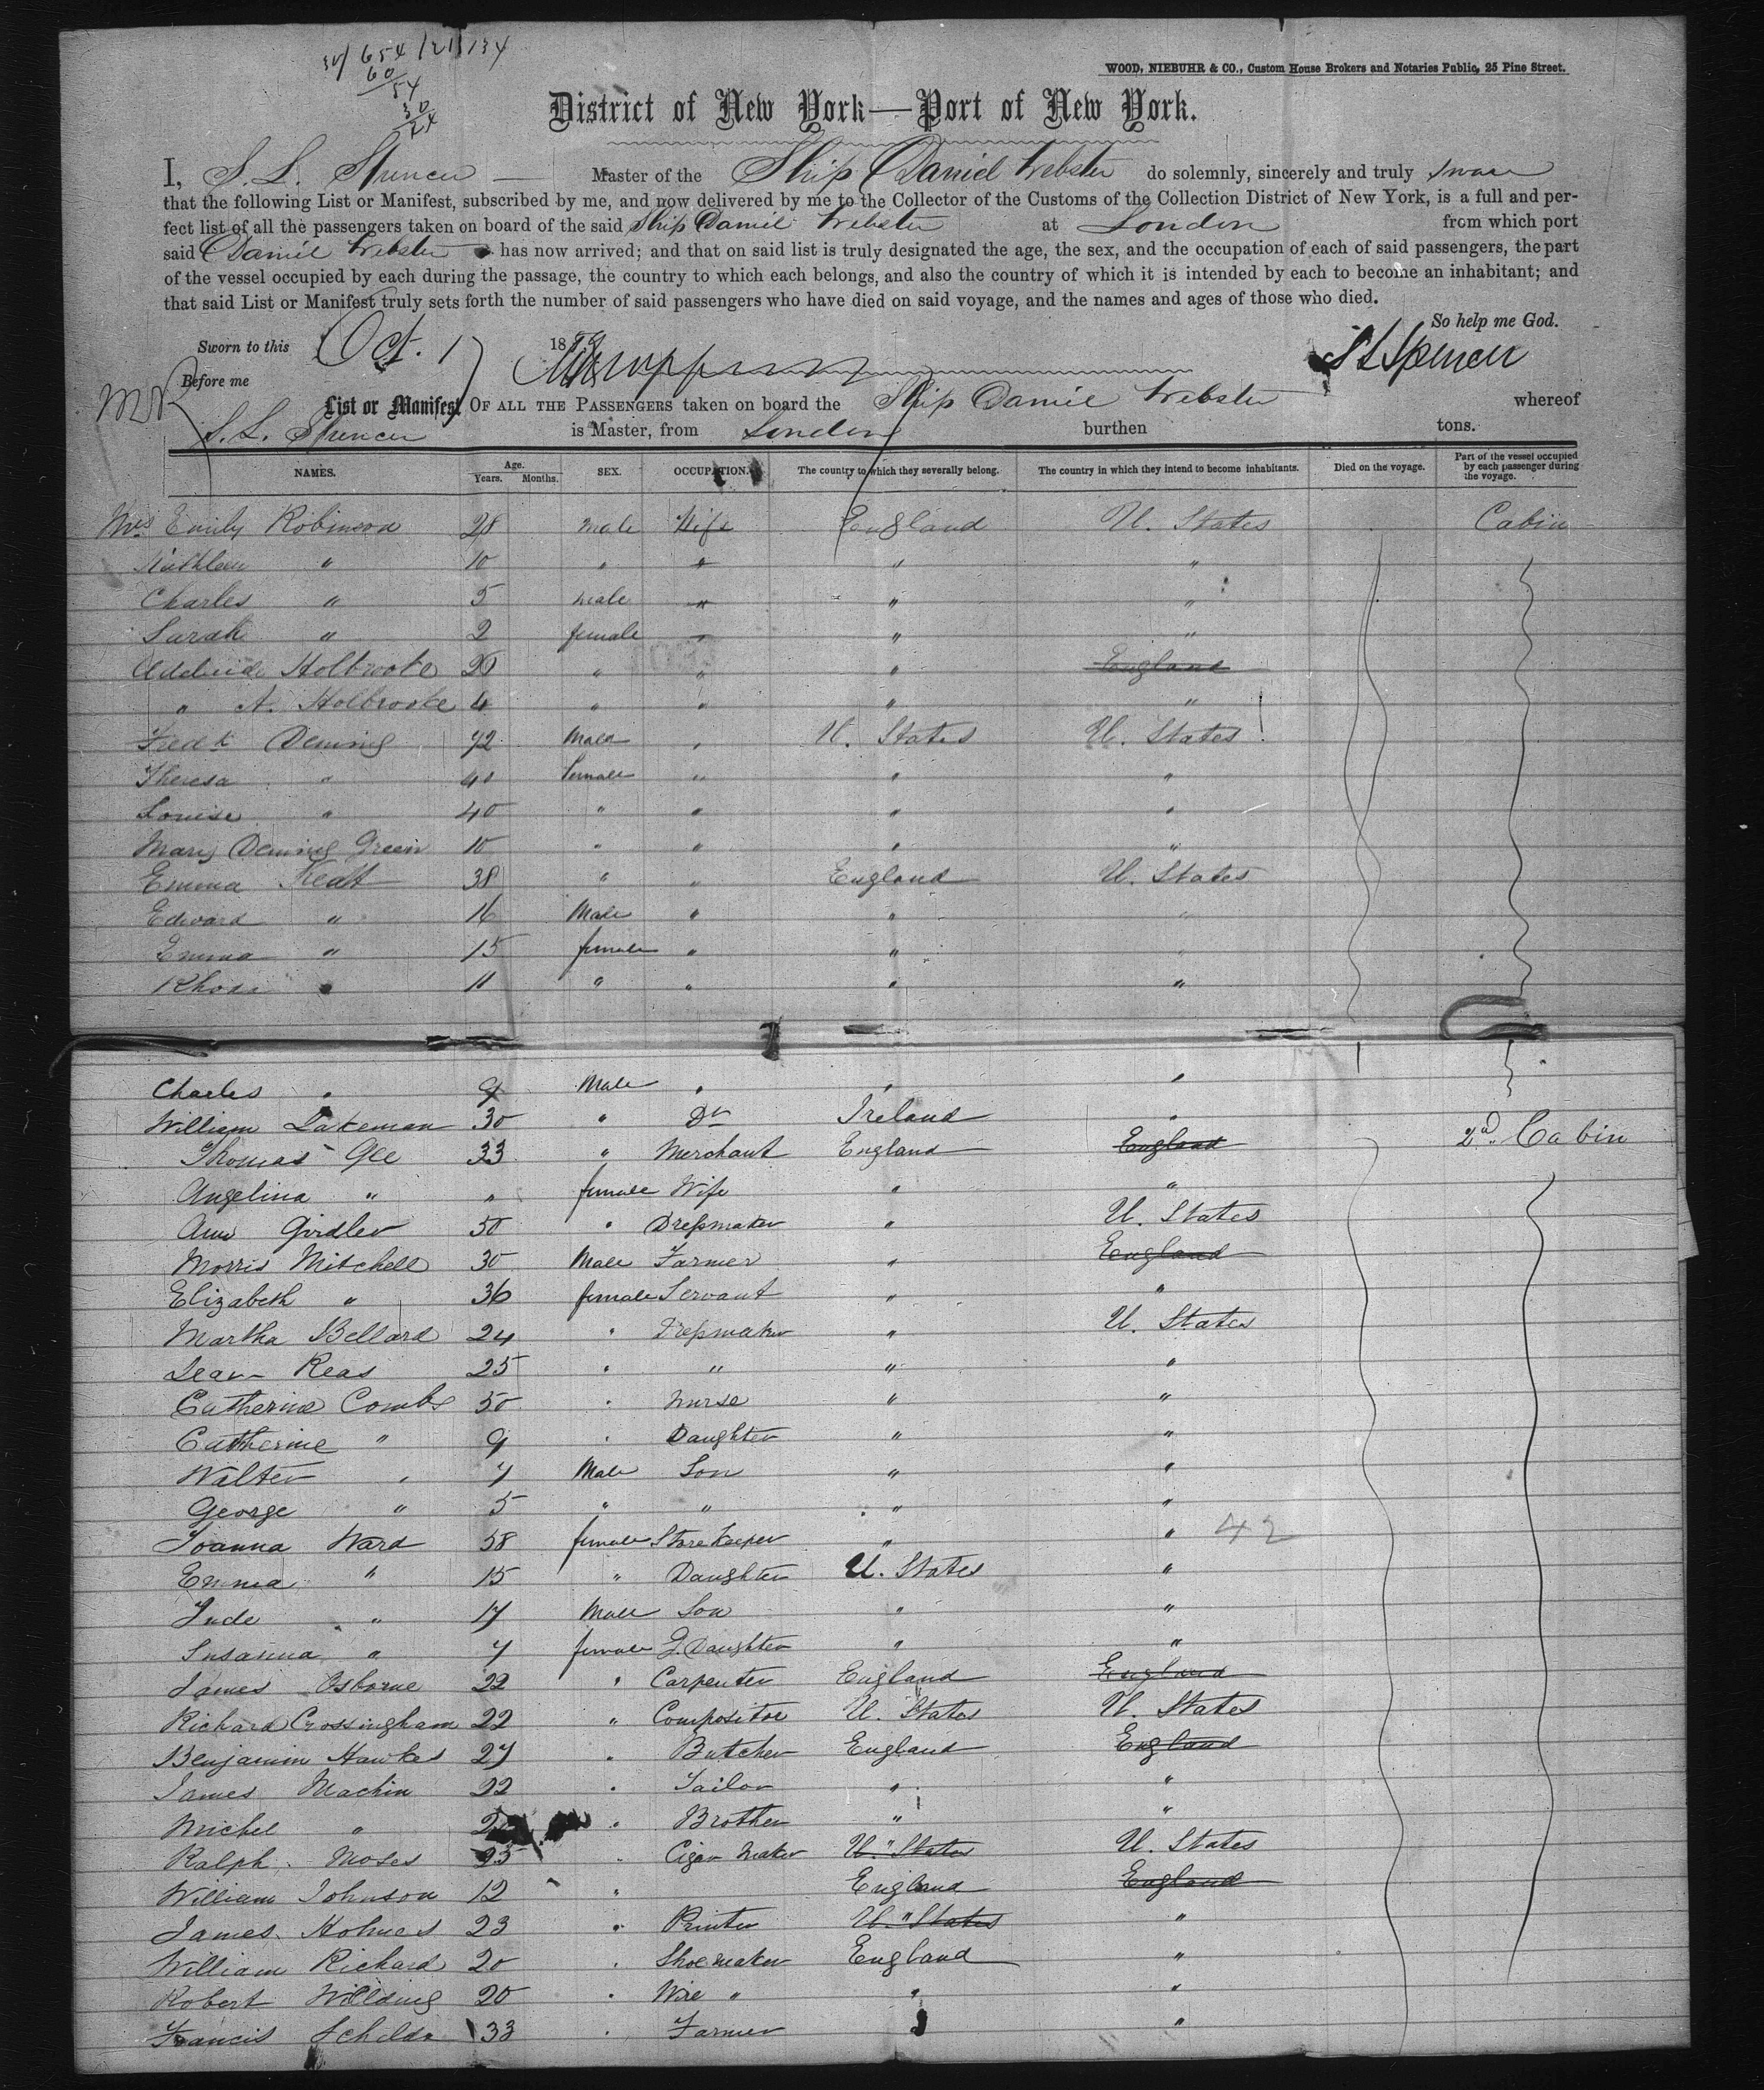 30/ 654 /21/134
60
54
30
24
WOOD, NIEBUHR & CO., Custom House Brokers and Notaries Public, 25 Pine Street.
District of New York—Port of New York.
I, S. L. Spencer Master of the Ship Daniel Webster do solemnly, sincerely and truly swear
that the following List or Manifest, subscribed by me, and now delivered by me to the Collector of the Customs of the Collection District of New York, is a full and per-
fect list of all the passengers taken on board of the said Ship Daniel Webster at London from which port
said Daniel Webster has now arrived; and that on said list is truly designated the age, the sex, and the occupation of each of said passengers, the part
of the vessel occupied by each during the passage, the country to which each belongs, and also the country of which it is intended by each to become an inhabitant; and
that said List or Manifest truly sets forth the number of said passengers who have died on said voyage, and the names and ages of those who died.
So help me God.
Sworn to this Oct. 17 1859 S L Spencer
Before me
List or Manifest OF ALL THE PASSENGERS taken on board the Ship Daniel Webster whereof
S. L. Spencer is Master, from London burthen tons.
NAMES. Age. Years. Months. SEX. OCCUPATION. The country to which they severally belong. The country in which they intend to become inhabitants. Died on the voyage. Part of the vessel occupied by each passenger during the voyage.
Mrs Emily Robinson 28 male Wife England U. States Cabin
Kathleen " 10 " " " "
Charles " 5 male " " "
Sarah " 2 female " " "
Adelaide Holbrooke 20 " " " England
" A. Holbrooke 4 " " " "
Fredk Deming 72 Male " U. States U. States
Theresa " 40 female " " "
Louise " 40 " " " "
Mary Deming Green 10 " " " "
Emma 38 " " England U. States
Edward " 16 Male " " "
Emma " 15 female " " "
11 " " " "
Charles " 9 Male " " "
William Lakeman 30 " Dr Ireland "
Thomas Gee 33 " Merchant England England 2d Cabin
Angelina " " female Wife " "
Ann Girdler 50 " Dressmaker " U. States
Morris Mitchell 30 Male Farmer " England
Elizabeth " 36 female Servant " "
Martha Bellard 24 " Dressmaker " U. States
Reas 25 " " " "
Catherine Combs 50 " Nurse " "
Catherine " 9 " Daughter " "
Walter " 7 Male Son " "
George " 5 " " " "
Joanna Ward 58 female Storekeeper " " 42
Emma " 15 " Daughter U. States "
Jude " 17 Male Son " "
Susanna " 7 female G. Daughter " "
James Osborne 22 " Carpenter England England
Richard Crossingham 22 " Compositor U. States U. States
Benjamin Hawkes 27 " Butcher England England
James Machin 22 " Tailor " "
Michel " " Brother " "
Ralph Moses 25 " Cigar Maker U. States U. States
William Johnson 12 " England England
James Holmes 23 " Printer U. States "
William Richard 20 " Shoemaker England "
Robert Wilding 20 " Wire " " "
Francis Schilds 33 " Farmer " "